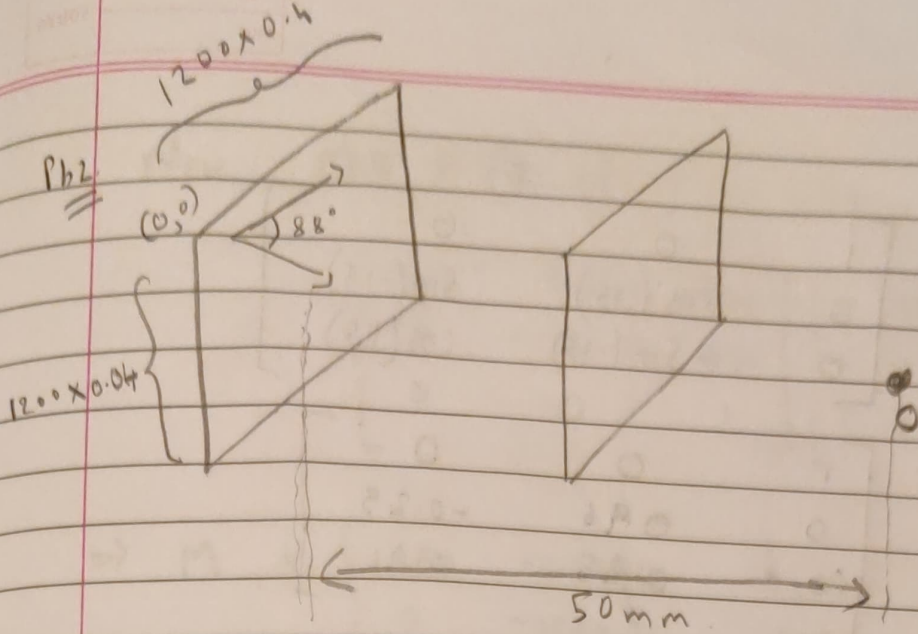 1200×0.4
Pb2
(0,0)
88°
1200×0.04
O
50mm